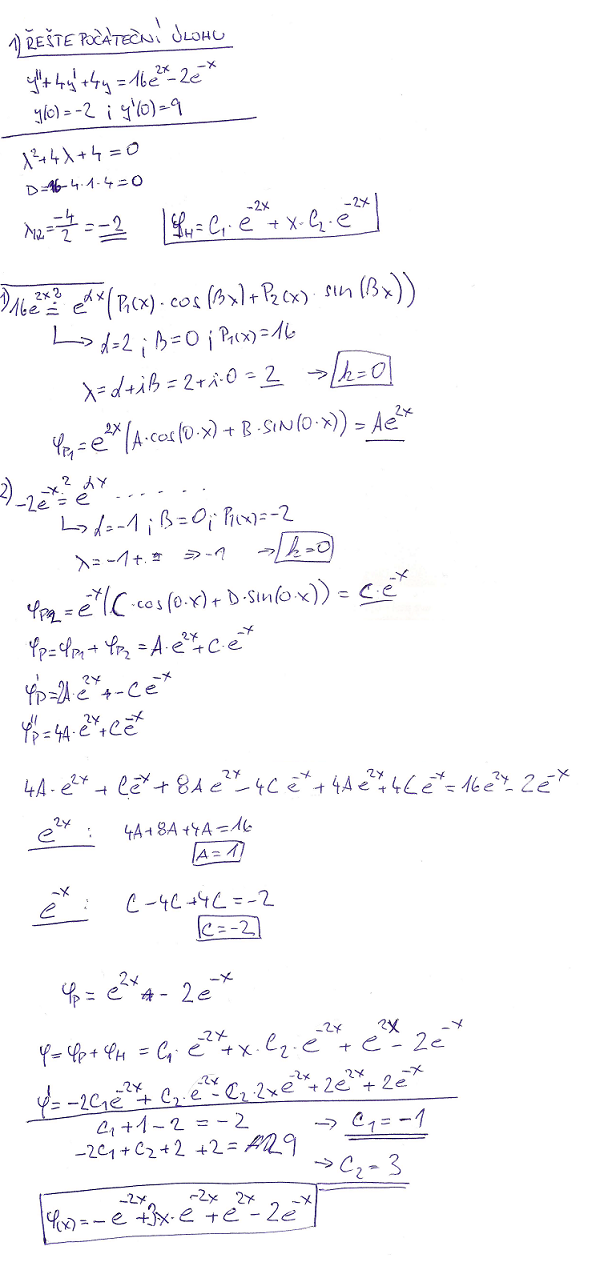 1) ŘEŠTE POČÁTEČNÍ ÚLOHU
y'' + 4y' + 4y = 16e^{2x} - 2e^{-x}
y(0) = -2 ; y'(0) = 9
λ² + 4λ + 4 = 0
D = 16 - 4·1·4 = 0
λ₁,₂ = -4/2 = -2   φ_H = C₁·e^{-2x} + x·C₂·e^{-2x}
1) 16e^{2x} ≟ e^{αx}(P₁(x)·cos(Bx) + P₂(x)·sin(Bx))
↳ α=2 ; B=0 ; P₁(x)=16
λ = α+iB = 2+i·0 = 2 → k=0
φ_{P₁} = e^{2x}(A·cos(0·x) + B·SIN(0·x)) = Ae^{2x}
2) -2e^{-x} ≟ e^{αx} . . . . . . .
↳ α=-1 ; B=0 ; P₁(x)=-2
λ = -1+.. => -1 → k=0
φ_{P2} = e^{-x}(C·cos(0·x) + D·sin(0·x)) = C·e^{-x}
φ_P = φ_{P₁} + φ_{P₂} = A·e^{2x} + C·e^{-x}
φ'_P = 2A·e^{2x} - Ce^{-x}
φ''_P = 4A·e^{2x} + Ce^{-x}
4A·e^{2x} + Ce^{-x} + 8Ae^{2x} - 4Ce^{-x} + 4Ae^{2x} + 4Ce^{-x} = 16e^{2x} - 2e^{-x}
e^{2x} : 4A+8A+4A=16
A=1
e^{-x} : C-4C+4C=-2
C=-2
φ_P = e^{2x} - 2e^{-x}
φ = φ_P + φ_H = C₁·e^{-2x} + x·C₂·e^{-2x} + e^{2x} - 2e^{-x}
φ' = -2C₁e^{-2x} + C₂·e^{-2x} - C₂·2xe^{-2x} + 2e^{2x} + 2e^{-x}
C₁+1-2 = -2 → C₁=-1
-2C₁+C₂+2+2 = 9
→ C₂=3
φ(x) = -e^{-2x} + 3x·e^{-2x} + e^{2x} - 2e^{-x}